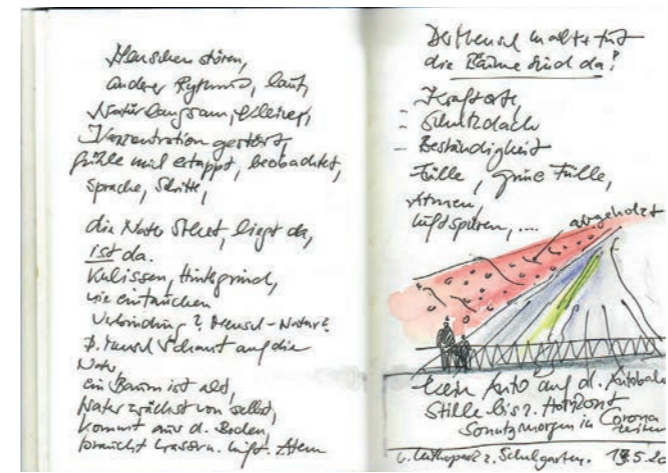 Menschen stören,
anderer Rythmus, laut,
Natur langsam,
Konzentration gestört,
fühle mich ertappt, beobachtet,
Sprache, Schritte,
die Natur steht, liegt da,
ist da.
Kulissen, Hintergrund,
wie eintauchen
Verbindung? Mensch-Natur?
D. Mensch schaut auf die
Natur,
ein Baum ist alt,
Natur wächst von selbst,
kommt aus d. Boden,
braucht Wasser u. Luft. Atem
Der Mensch malt + tut
die Bäume sind da!
Kraftorte,
– Schutzdach
– Beständigkeit
Fülle, grüne Fülle,
Atmen,
Luft spüren, ....
abgeholzt
Kein Auto auf d. Autobahn
Stille bis z. Horizont
Sonntagmorgen in Corona
zeiten
z. Schulgarten.